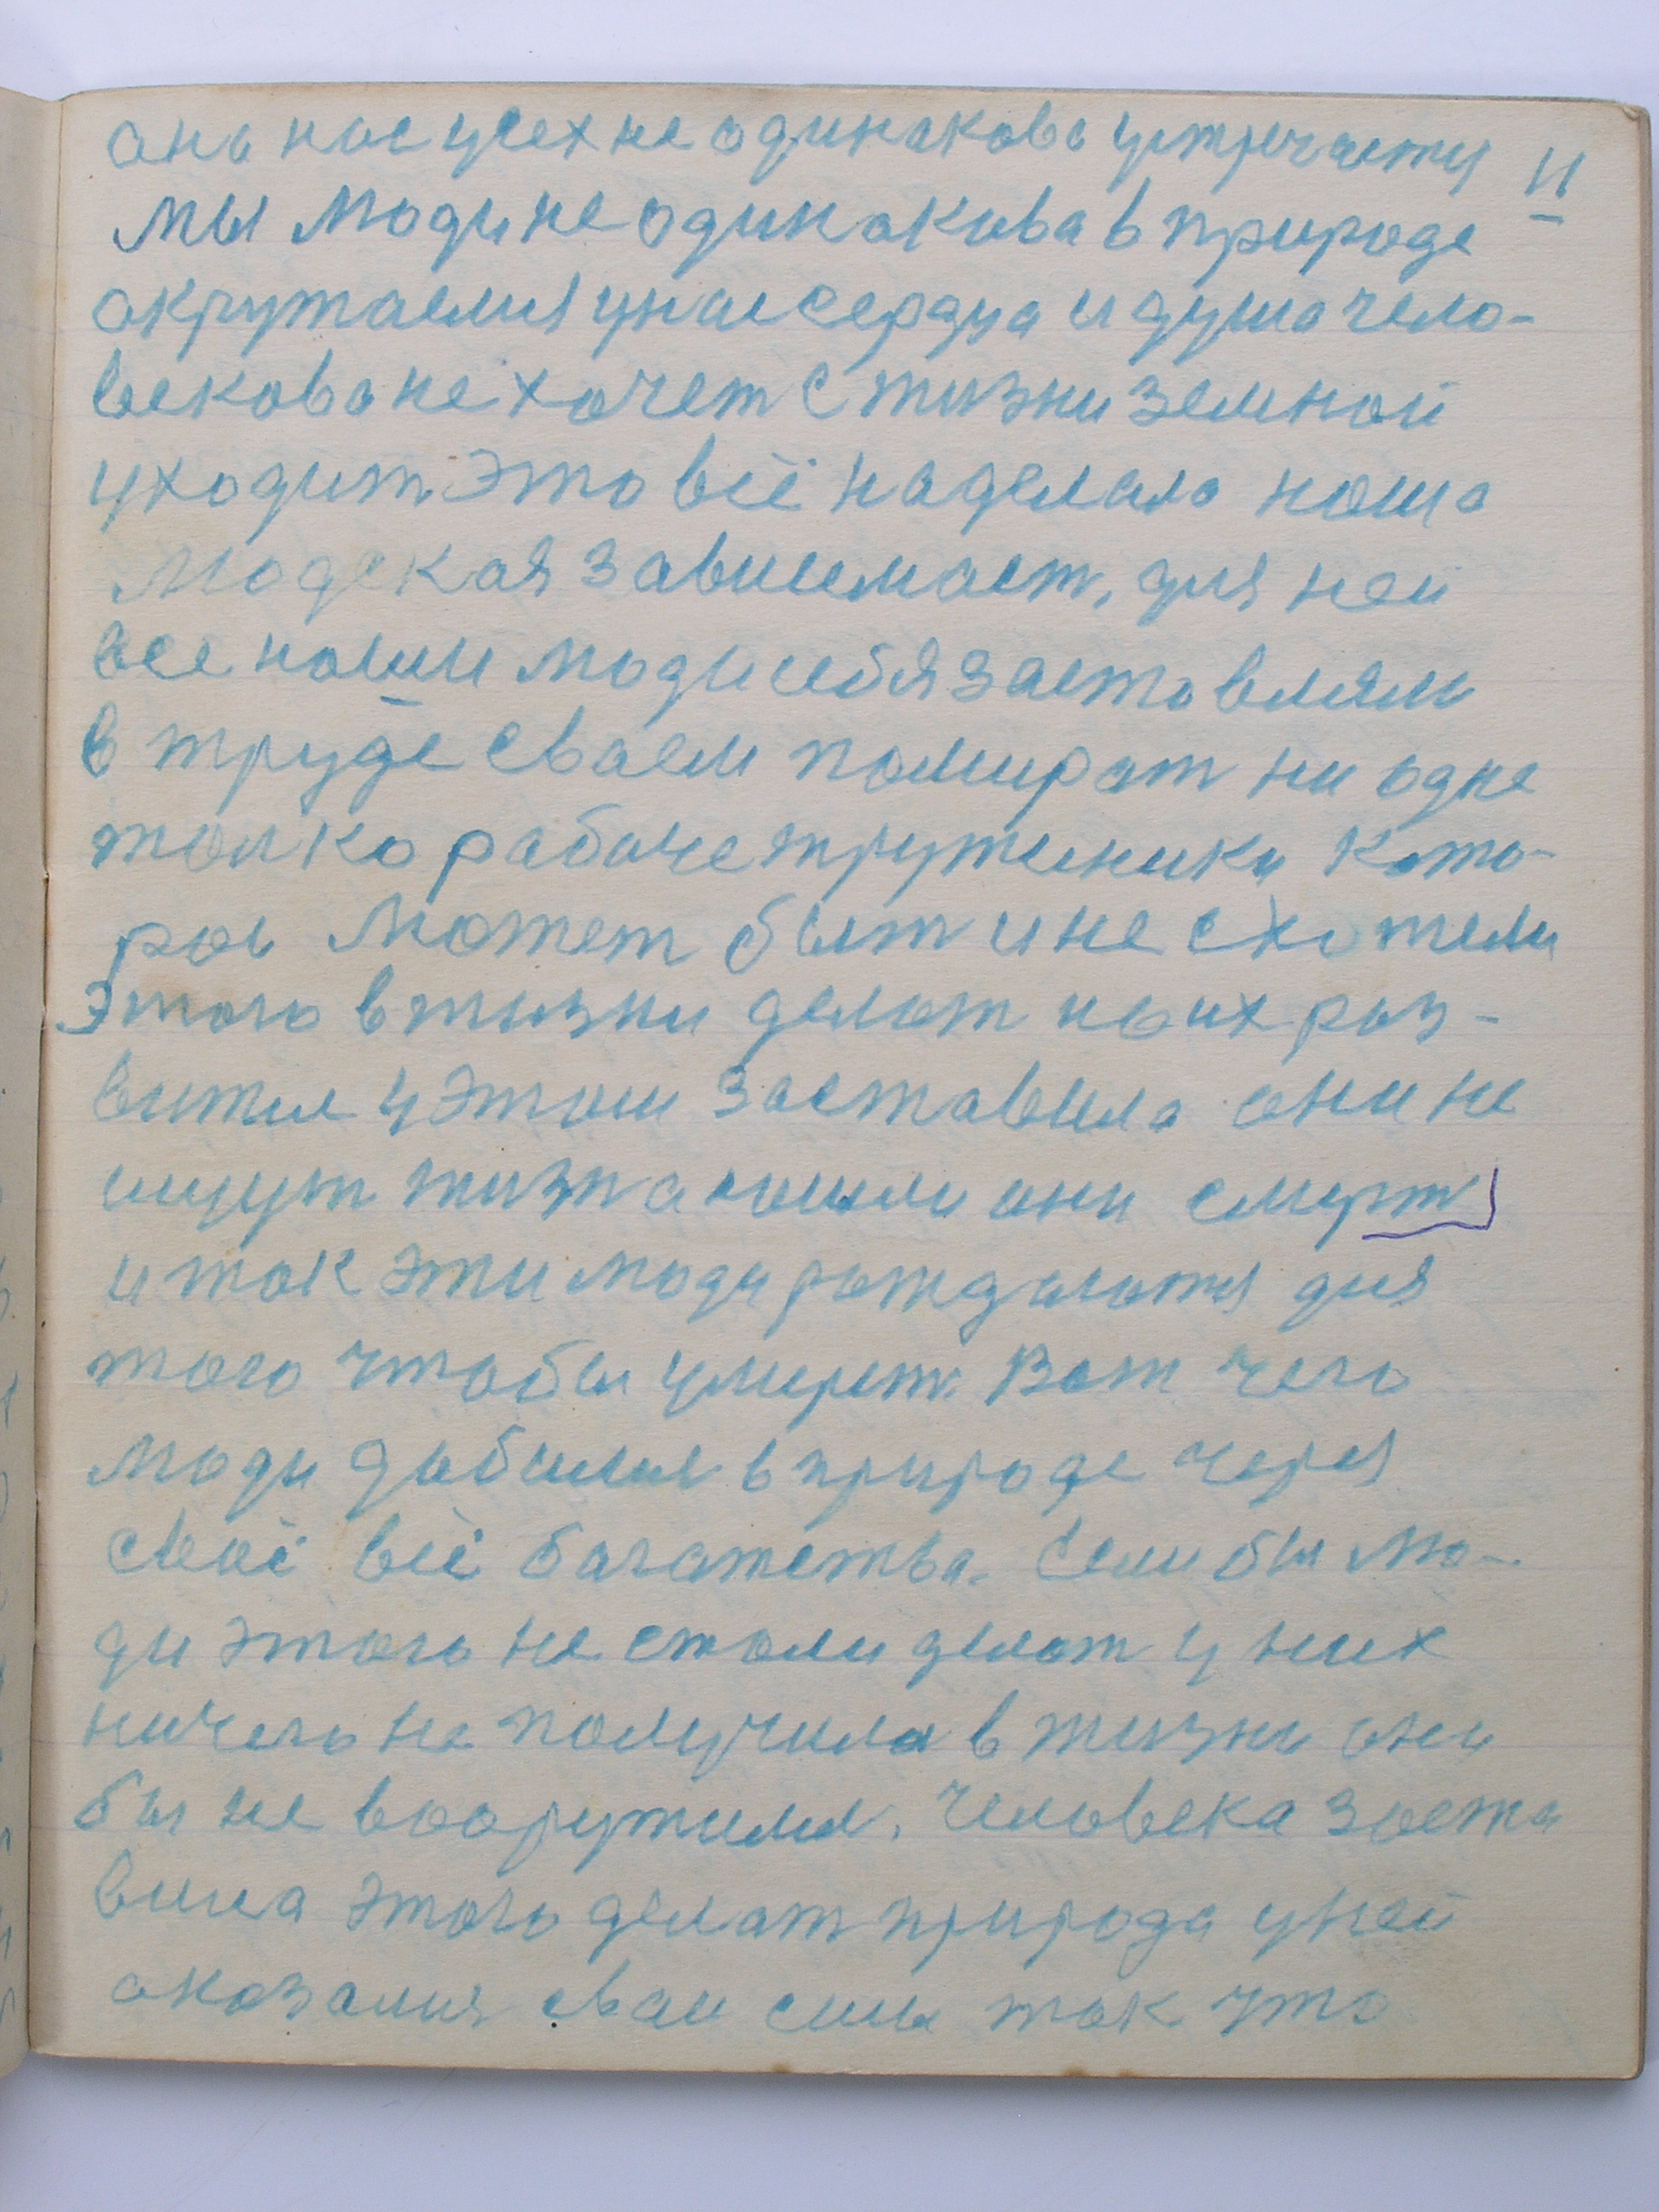 11
она нас усех не одинакова устречаить
мы люди не одинакива в природе
окружаемся у нас сердца и душа чело-
векова не хочет с жизни земной
уходит это всё наделала наша
людская зависимаст, для ней
все наши люди себя заставляли
в труде сваем помират ни одне
толко рабоче труженики кото-
рое может быт и не схотели
этого в жызни делат но их раз-
витие у этом заставила они не
ищут жизн а нашли они смерт
и так эти люди рождаются для
того чтобы умерет. Вот чего
люди дабилис в природе через
своё всё багатства. Если бы лю-
ди этого не стали делат у них
ничего не получила в жизни они
бы не вооружилис. Человека заста
вила этого делат природа у ней
оказалис сваи силы так что